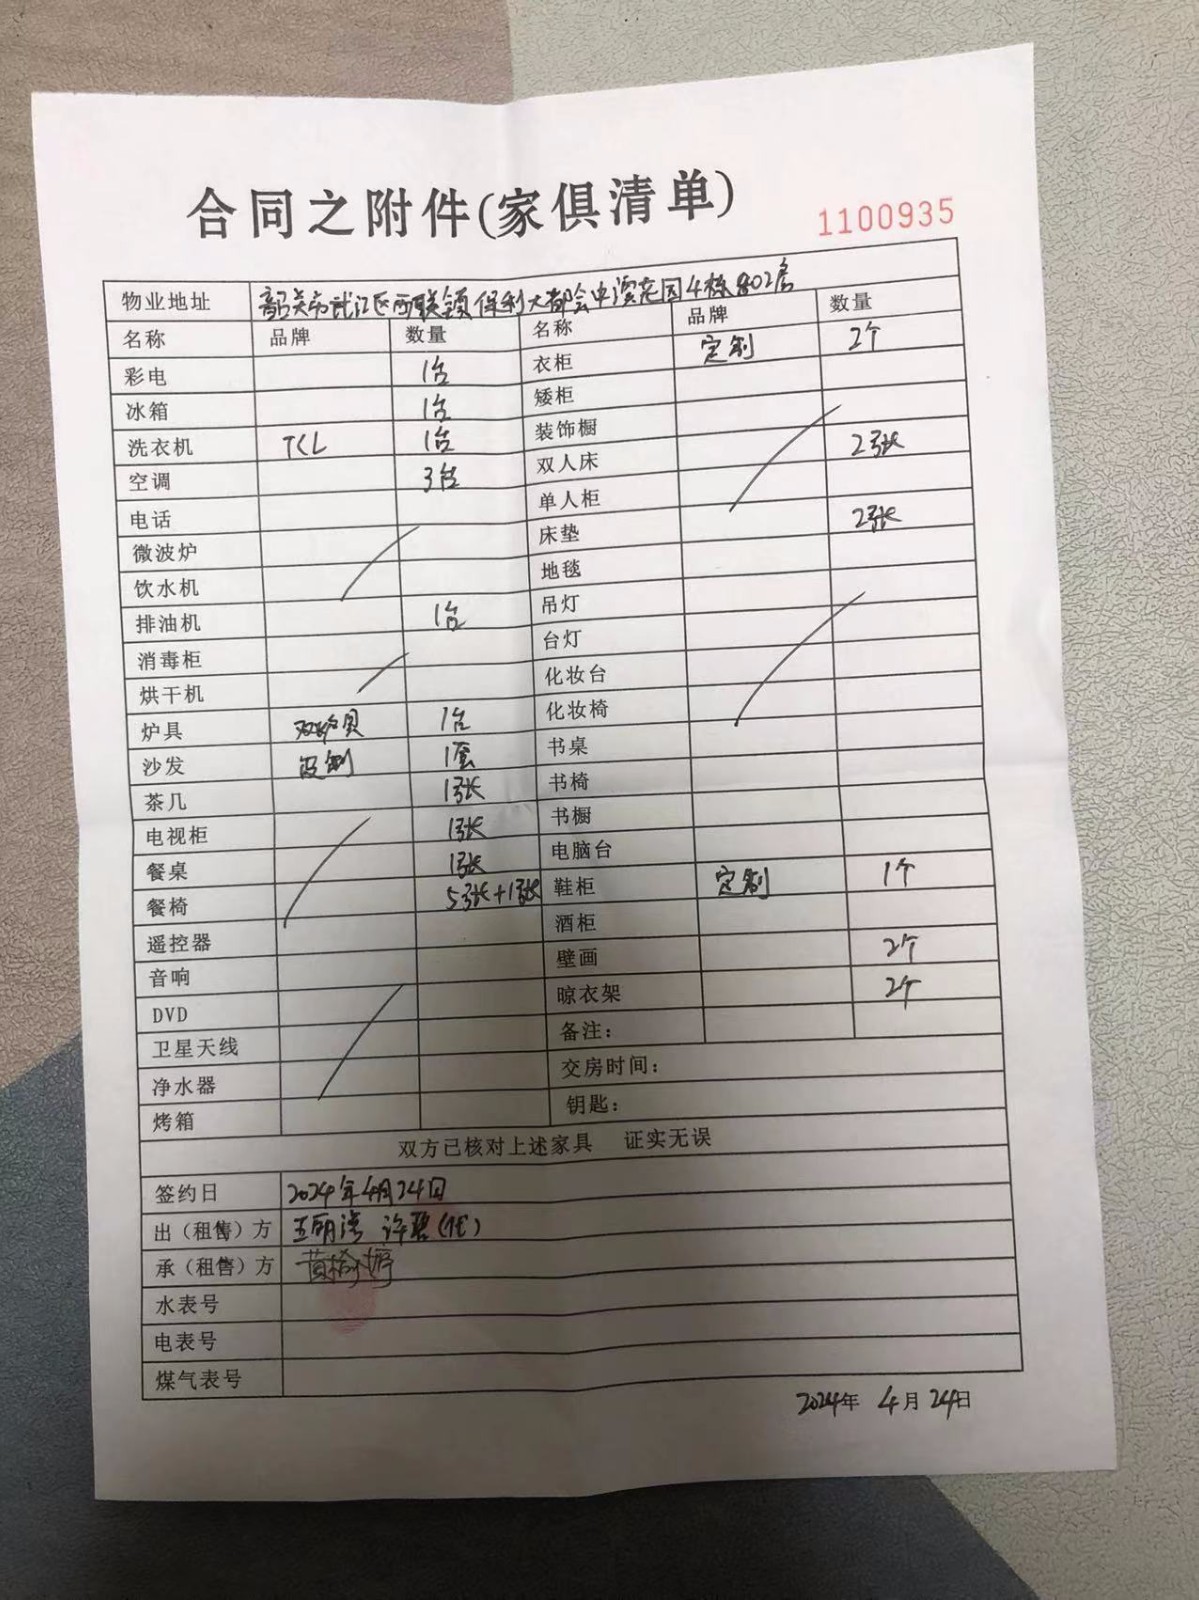 合同之附件(家俱清单)
1100935
物业地址 韶关市武江区西联镇保利大都会中滨花园4栋802房
名称 品牌 数量 名称 品牌 数量
彩电 1台 衣柜 定制 2个
冰箱 1台 矮柜
洗衣机 TCL 1台 装饰橱
空调 3台 双人床 2张
电话 单人柜
微波炉 床垫 2张
饮水机 地毯
排油机 1台 吊灯
消毒柜 台灯
烘干机 化妆台
炉具 双炉具 1台 化妆椅
沙发 1套 书桌
茶几 1张 书椅
电视柜 1张 书橱
餐桌 1张 电脑台
餐椅 5张+1张 鞋柜 定制 1个
遥控器 酒柜
音响 壁画 2个
DVD 晾衣架 2个
卫星天线 备注:
净水器 交房时间:
烤箱 钥匙:
双方已核对上述家具 证实无误
签约日 2024年4月24日
出(租售)方 许碧(代)
承(租售)方 黄榆婷
水表号
电表号
煤气表号
2024年 4月 24日